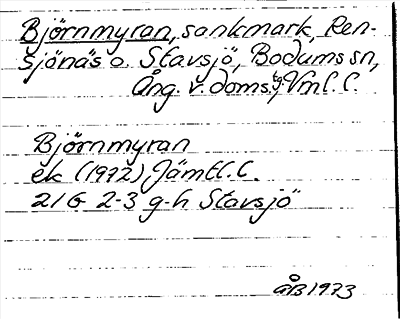 Björnmyran, sankmark, Ren-
sjönäs o. Stavsjö, Bodums sn,
Ång. v. doms.g, Vml. l.
Björnmyran
ek (1972) Jämtl. l.
21 G 2-3 g-h Stavsjö
ÅB 1973